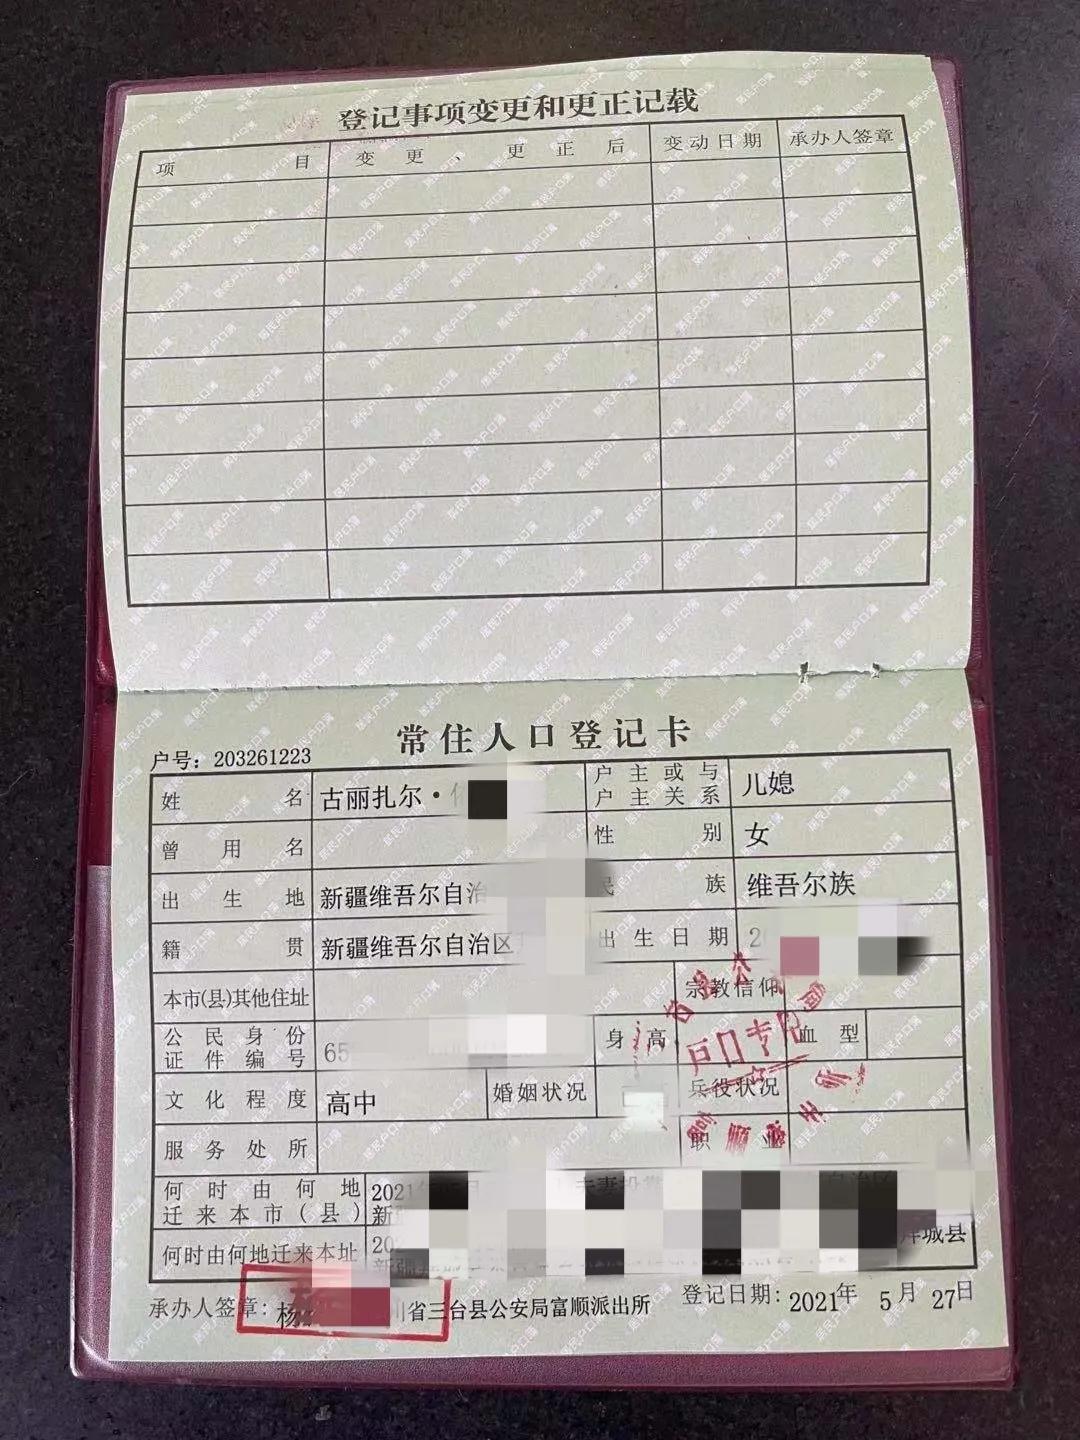 登记事项变更和更正记载
项 目 变 更 、 更 正 后 变动日期 承办人签章
常住人口登记卡
户号：203261223
姓 名 古丽扎尔· 户主或与户主关系 儿媳
曾 用 名 性 别 女
出 生 地 新疆维吾尔自治 民 族 维吾尔族
籍 贯 新疆维吾尔自治区 出生日期 2
本市(县)其他住址 宗教信仰
公民身份证件编号 65 身 高 血 型
文化程度 高中 婚姻状况 兵役状况
服务处所 职 业
何时由何地迁来本市(县) 2021 夫妻投靠 自治区
新
何时由何地迁来本址 20
城县
承办人签章：杨 川省三台县公安局富顺派出所 登记日期：2021年 5月 27日